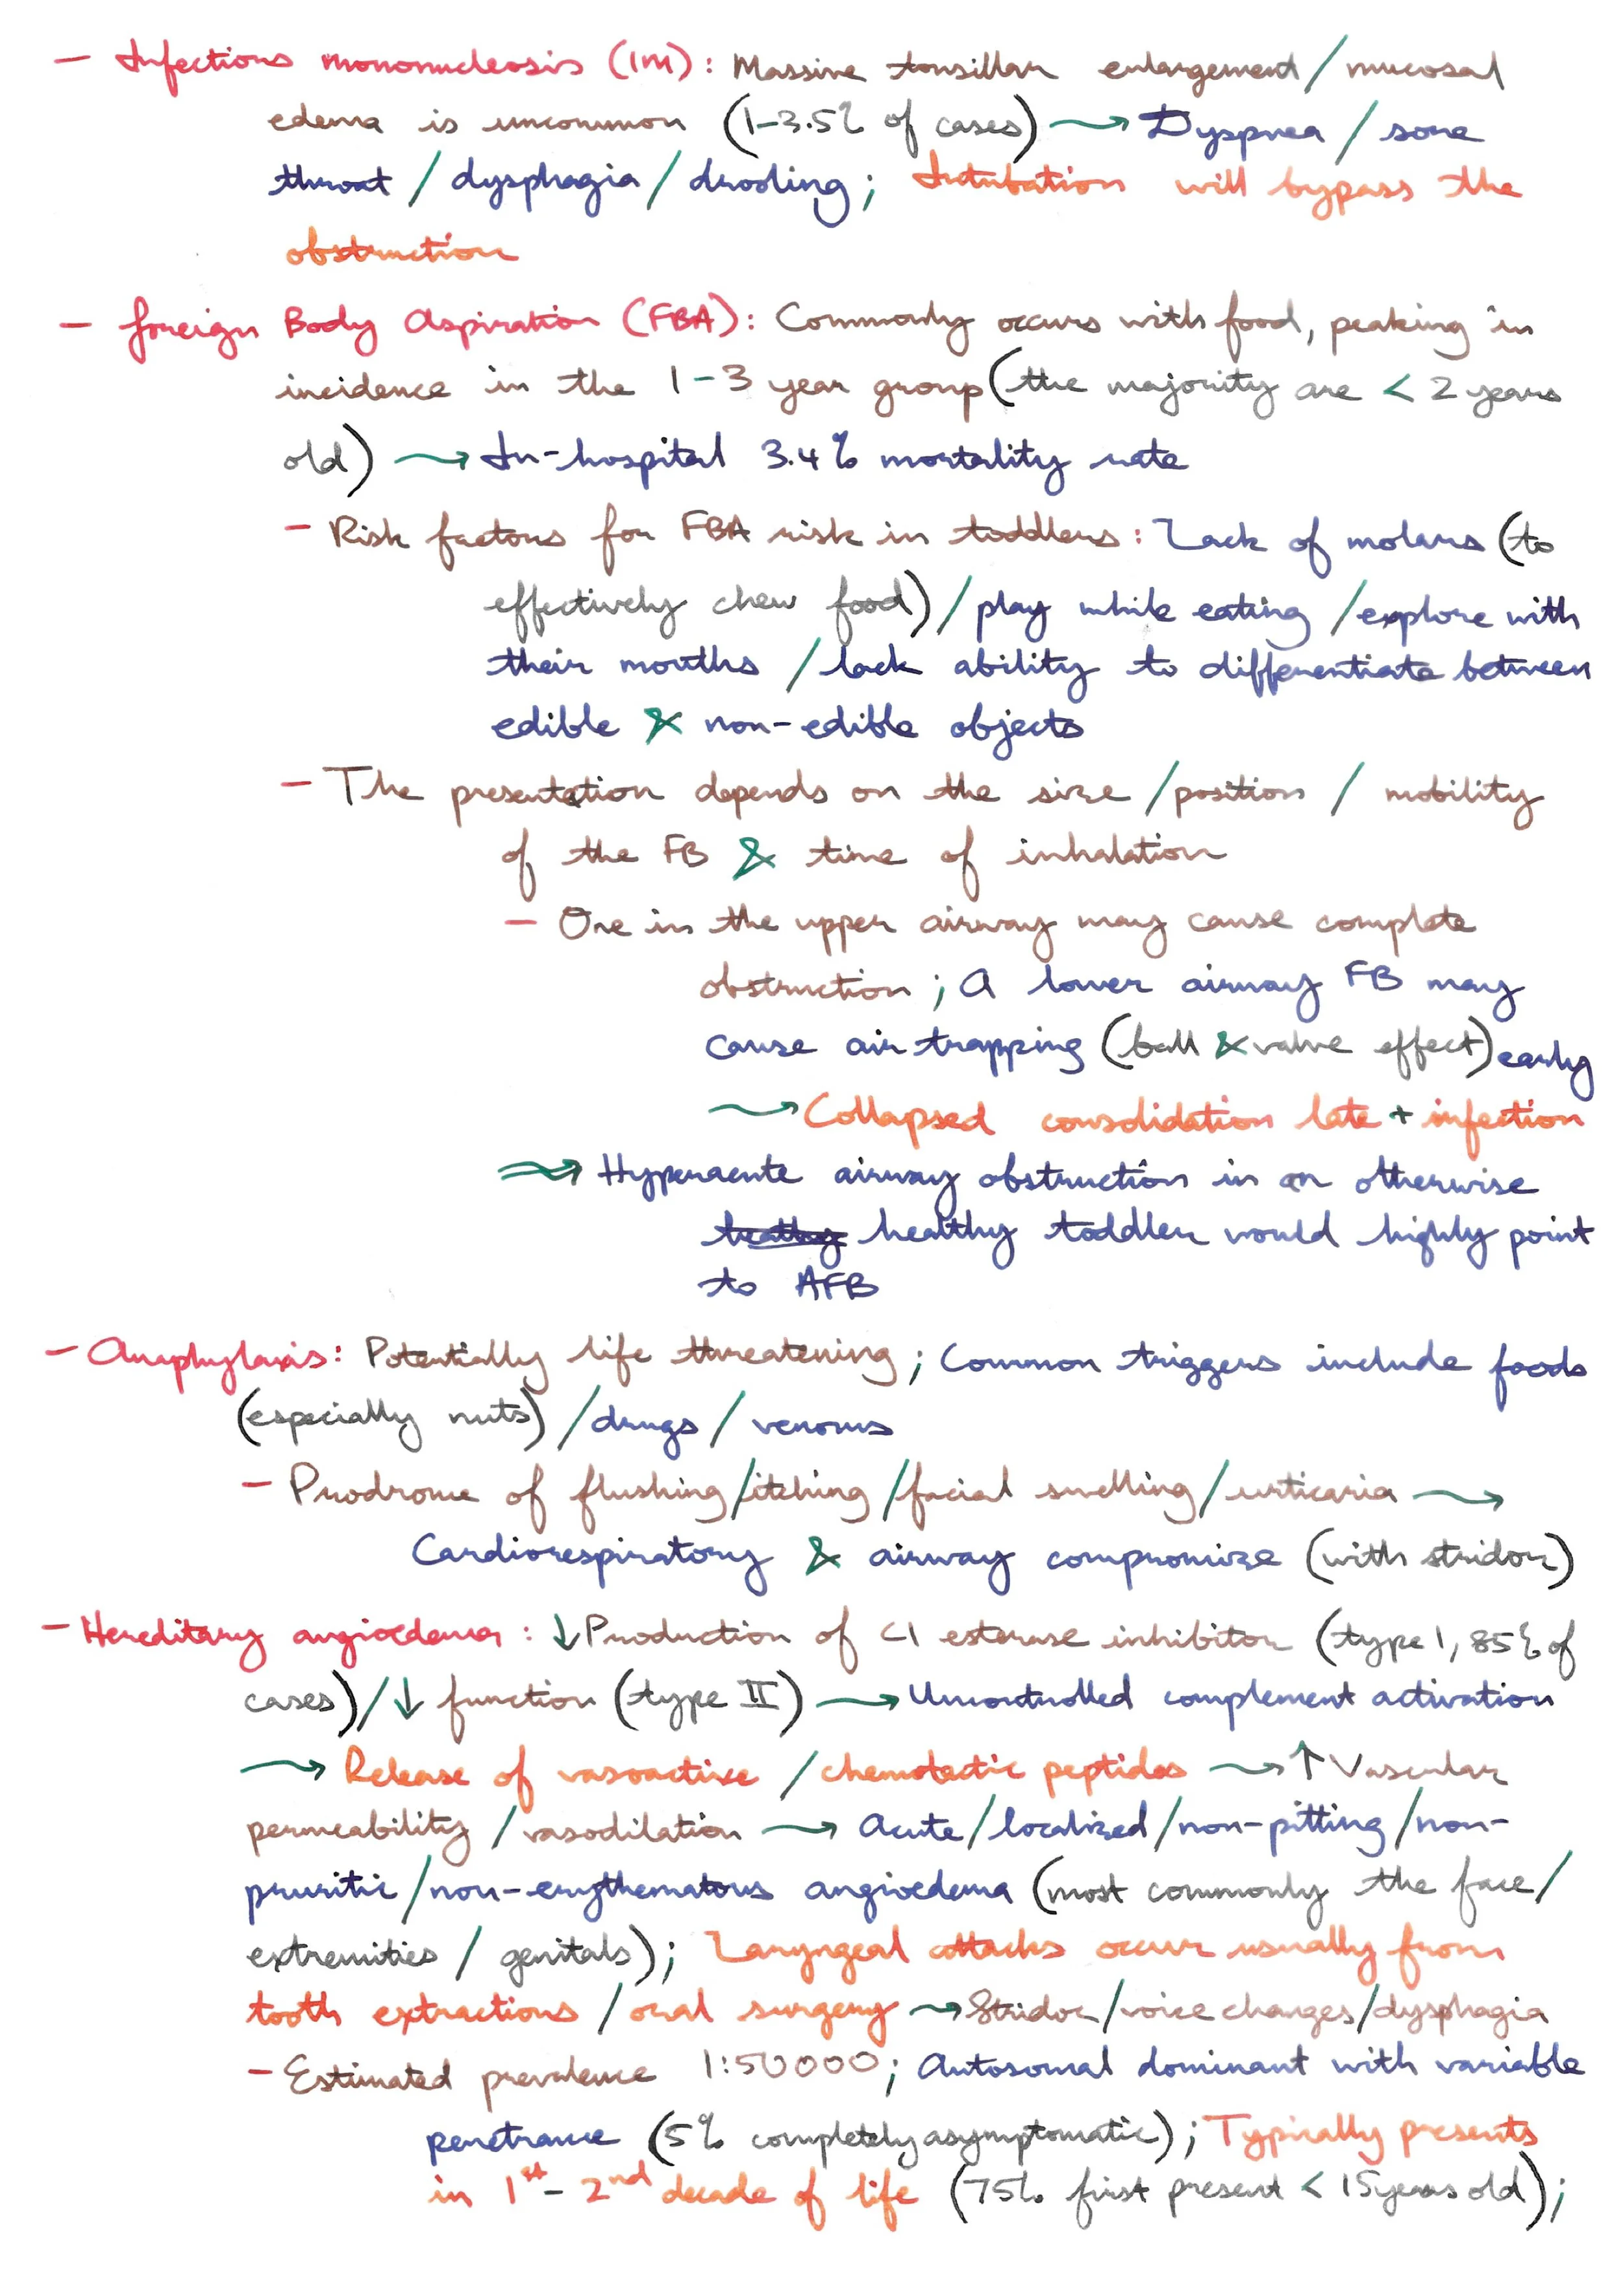 - Infections mononucleosis (IM): Massive tonsillar enlargement / mucosal
edema is uncommon (1-3.5% of cases) → Dyspnea / sore
throat / dysphagia / drooling; Intubation will bypass the
obstruction
- Foreign Body Aspiration (FBA): Commonly occurs with food, peaking in
incidence in the 1-3 year group (the majority are < 2 years
old) → In-hospital 3.4% mortality rate
- Risk factors for FBA risk in toddlers: Lack of molars (to
effectively chew food) / play while eating / explore with
their mouths / lack ability to differentiate between
edible & non-edible objects
- The presentation depends on the size / position / mobility
of the FB & time of inhalation
- One in the upper airway may cause complete
obstruction; A lower airway FB may
cause air trapping (ball & valve effect) early
→ Collapsed consolidation late + infection
⇒ Hyperacute airway obstruction in an otherwise
healthy toddler would highly point
to AFB
- Anaphylaxis: Potentially life threatening; Common triggers include foods
(especially nuts) / drugs / venoms
- Prodrome of flushing / itching / facial swelling / urticaria →
Cardiorespiratory & airway compromize (with stridor)
- Hereditary angioedema: ↓ Production of C1 esterase inhibitor (type 1, 85% of
cases) / ↓ function (type II) → Uncontrolled complement activation
→ Release of vasoactive / chemotactic peptides → ↑ Vascular
permeability / vasodilation → Acute / localized / non-pitting / non-
pruritic / non-erythematous angioedema (most commonly the face /
extremities / genitals); Laryngeal attacks occur usually from
tooth extractions / oral surgery → Stridor / voice changes / dysphagia
- Estimated prevalence 1:50000; Autosomal dominant with variable
penetrance (5% completely asymptomatic); Typically presents
in 1st - 2nd decade of life (75% first present < 15 years old);